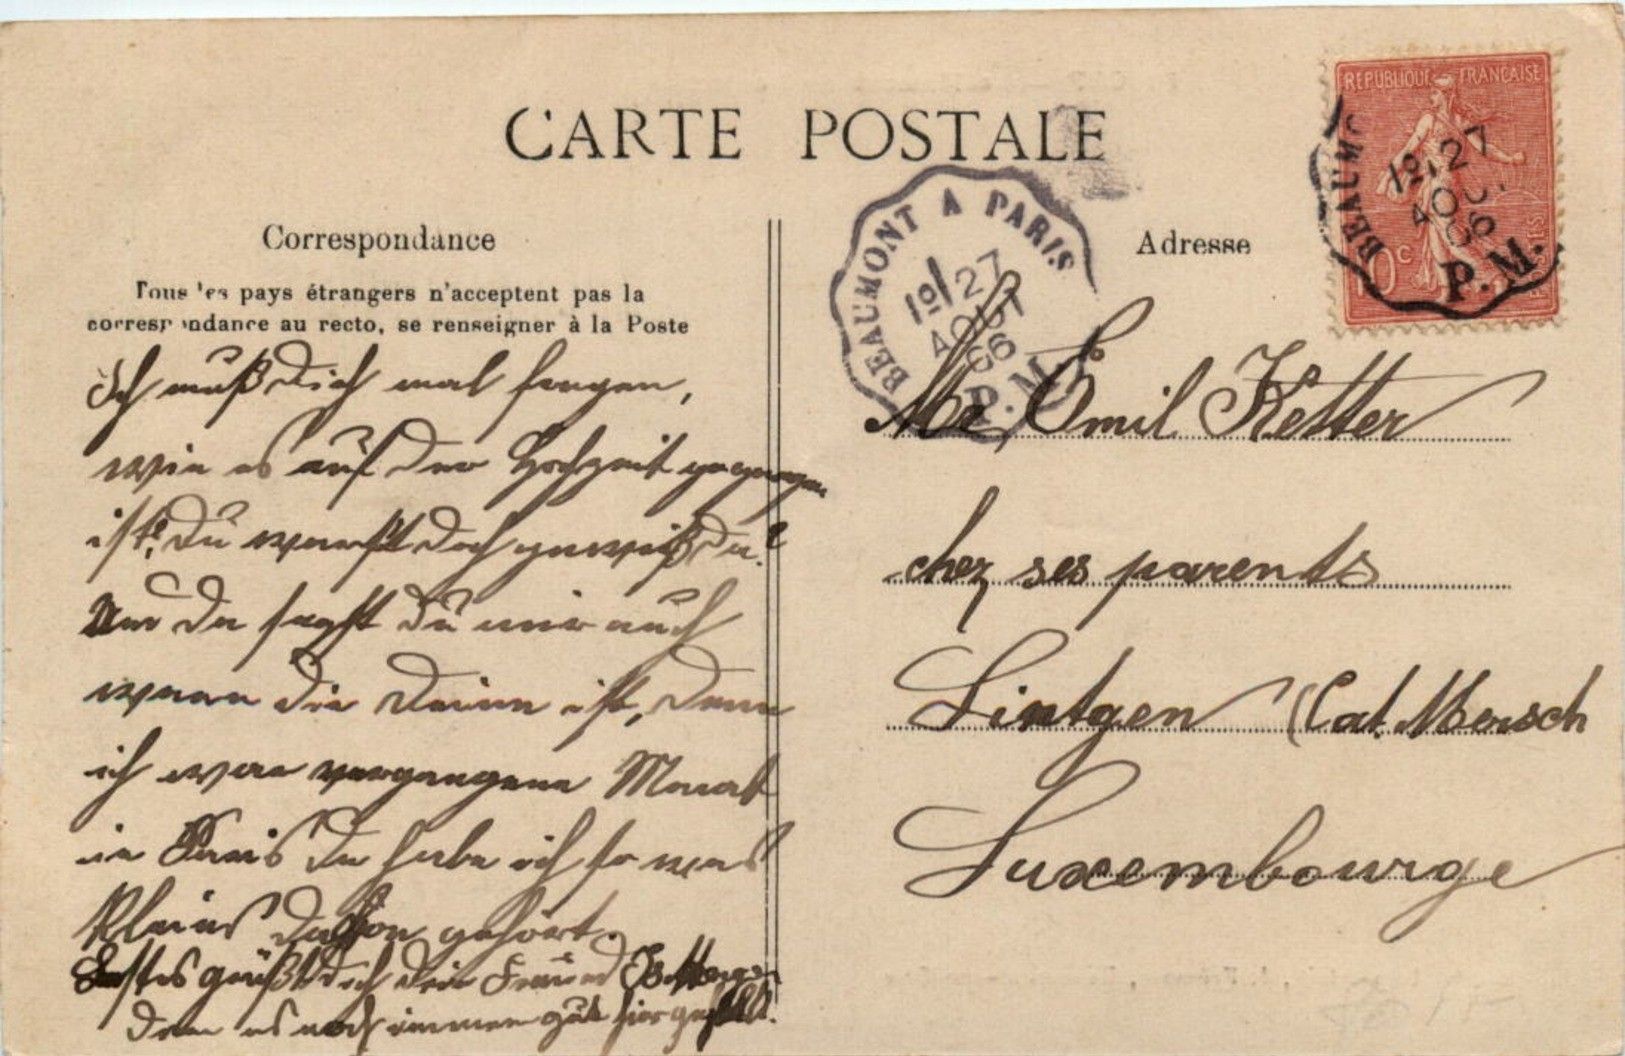 CARTE POSTALE
Correspondance
Tous les pays étrangers n'acceptent pas la
correspondance au recto, se renseigner à la Poste
Ich muß dich mal fragen,
wie es auf der Hochzeit gegangen
ist? Du warst doch gewiß da?
Nur da sagst du mir auch
wenn die Deine ist, denn
ich war vergangenen Monat
in Paris da habe ich so was
kleines davon gehört.
grüßt dich dein Freund
dem es noch immer gut hier gefällt.
BEAUMONT A PARIS
1º 27
AOUT
06
P.M.
Adresse
REPUBLIQUE FRANÇAISE
10c
POSTES
BEAUMO
1º 27
AOU
06
P.M.
Mr Emil Ketter
chez ses parents
Lintgen (Cat. Mersch
Luxembourge